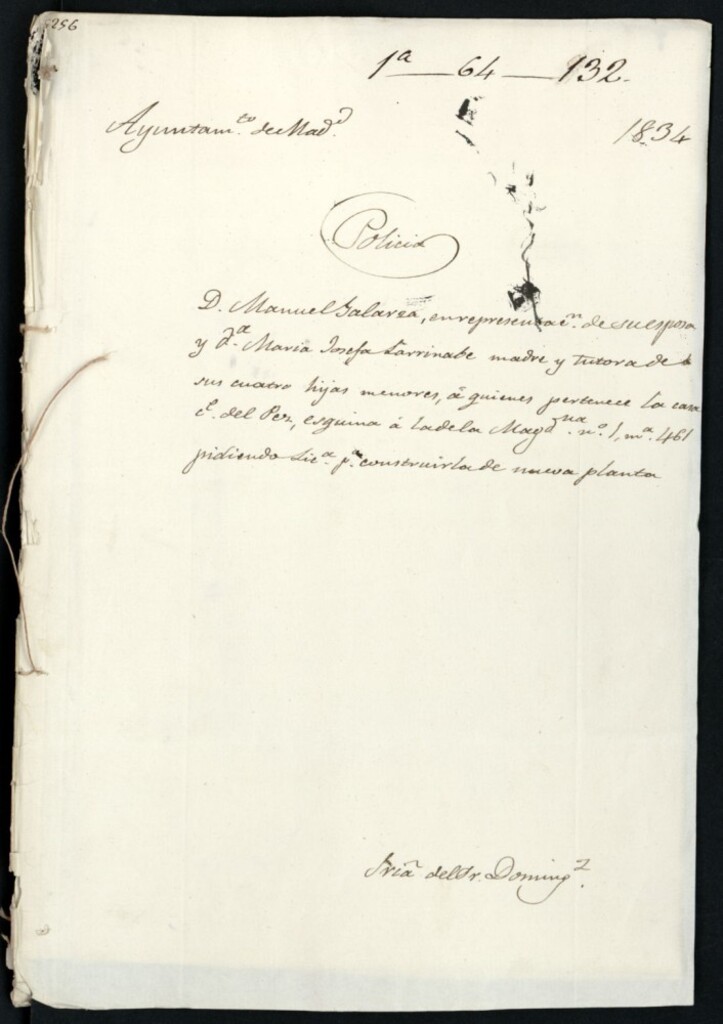 256
1ª — 64 — 132.
Ayuntam.to de Mad.d 1834
Policia
D. Manuel Galarza, en representac.n de su esposa
y D.ª Maria Josefa Larrinabe madre y tutora de
sus cuatro hijas menores, á quienes pertenece la casa
C.e del Pez, esquina á la de la Magd.na n.º 1, m.ª 461
pidiendo Lic.ª p.ª construirla de nueva planta
Sria del Sr. Doming.z